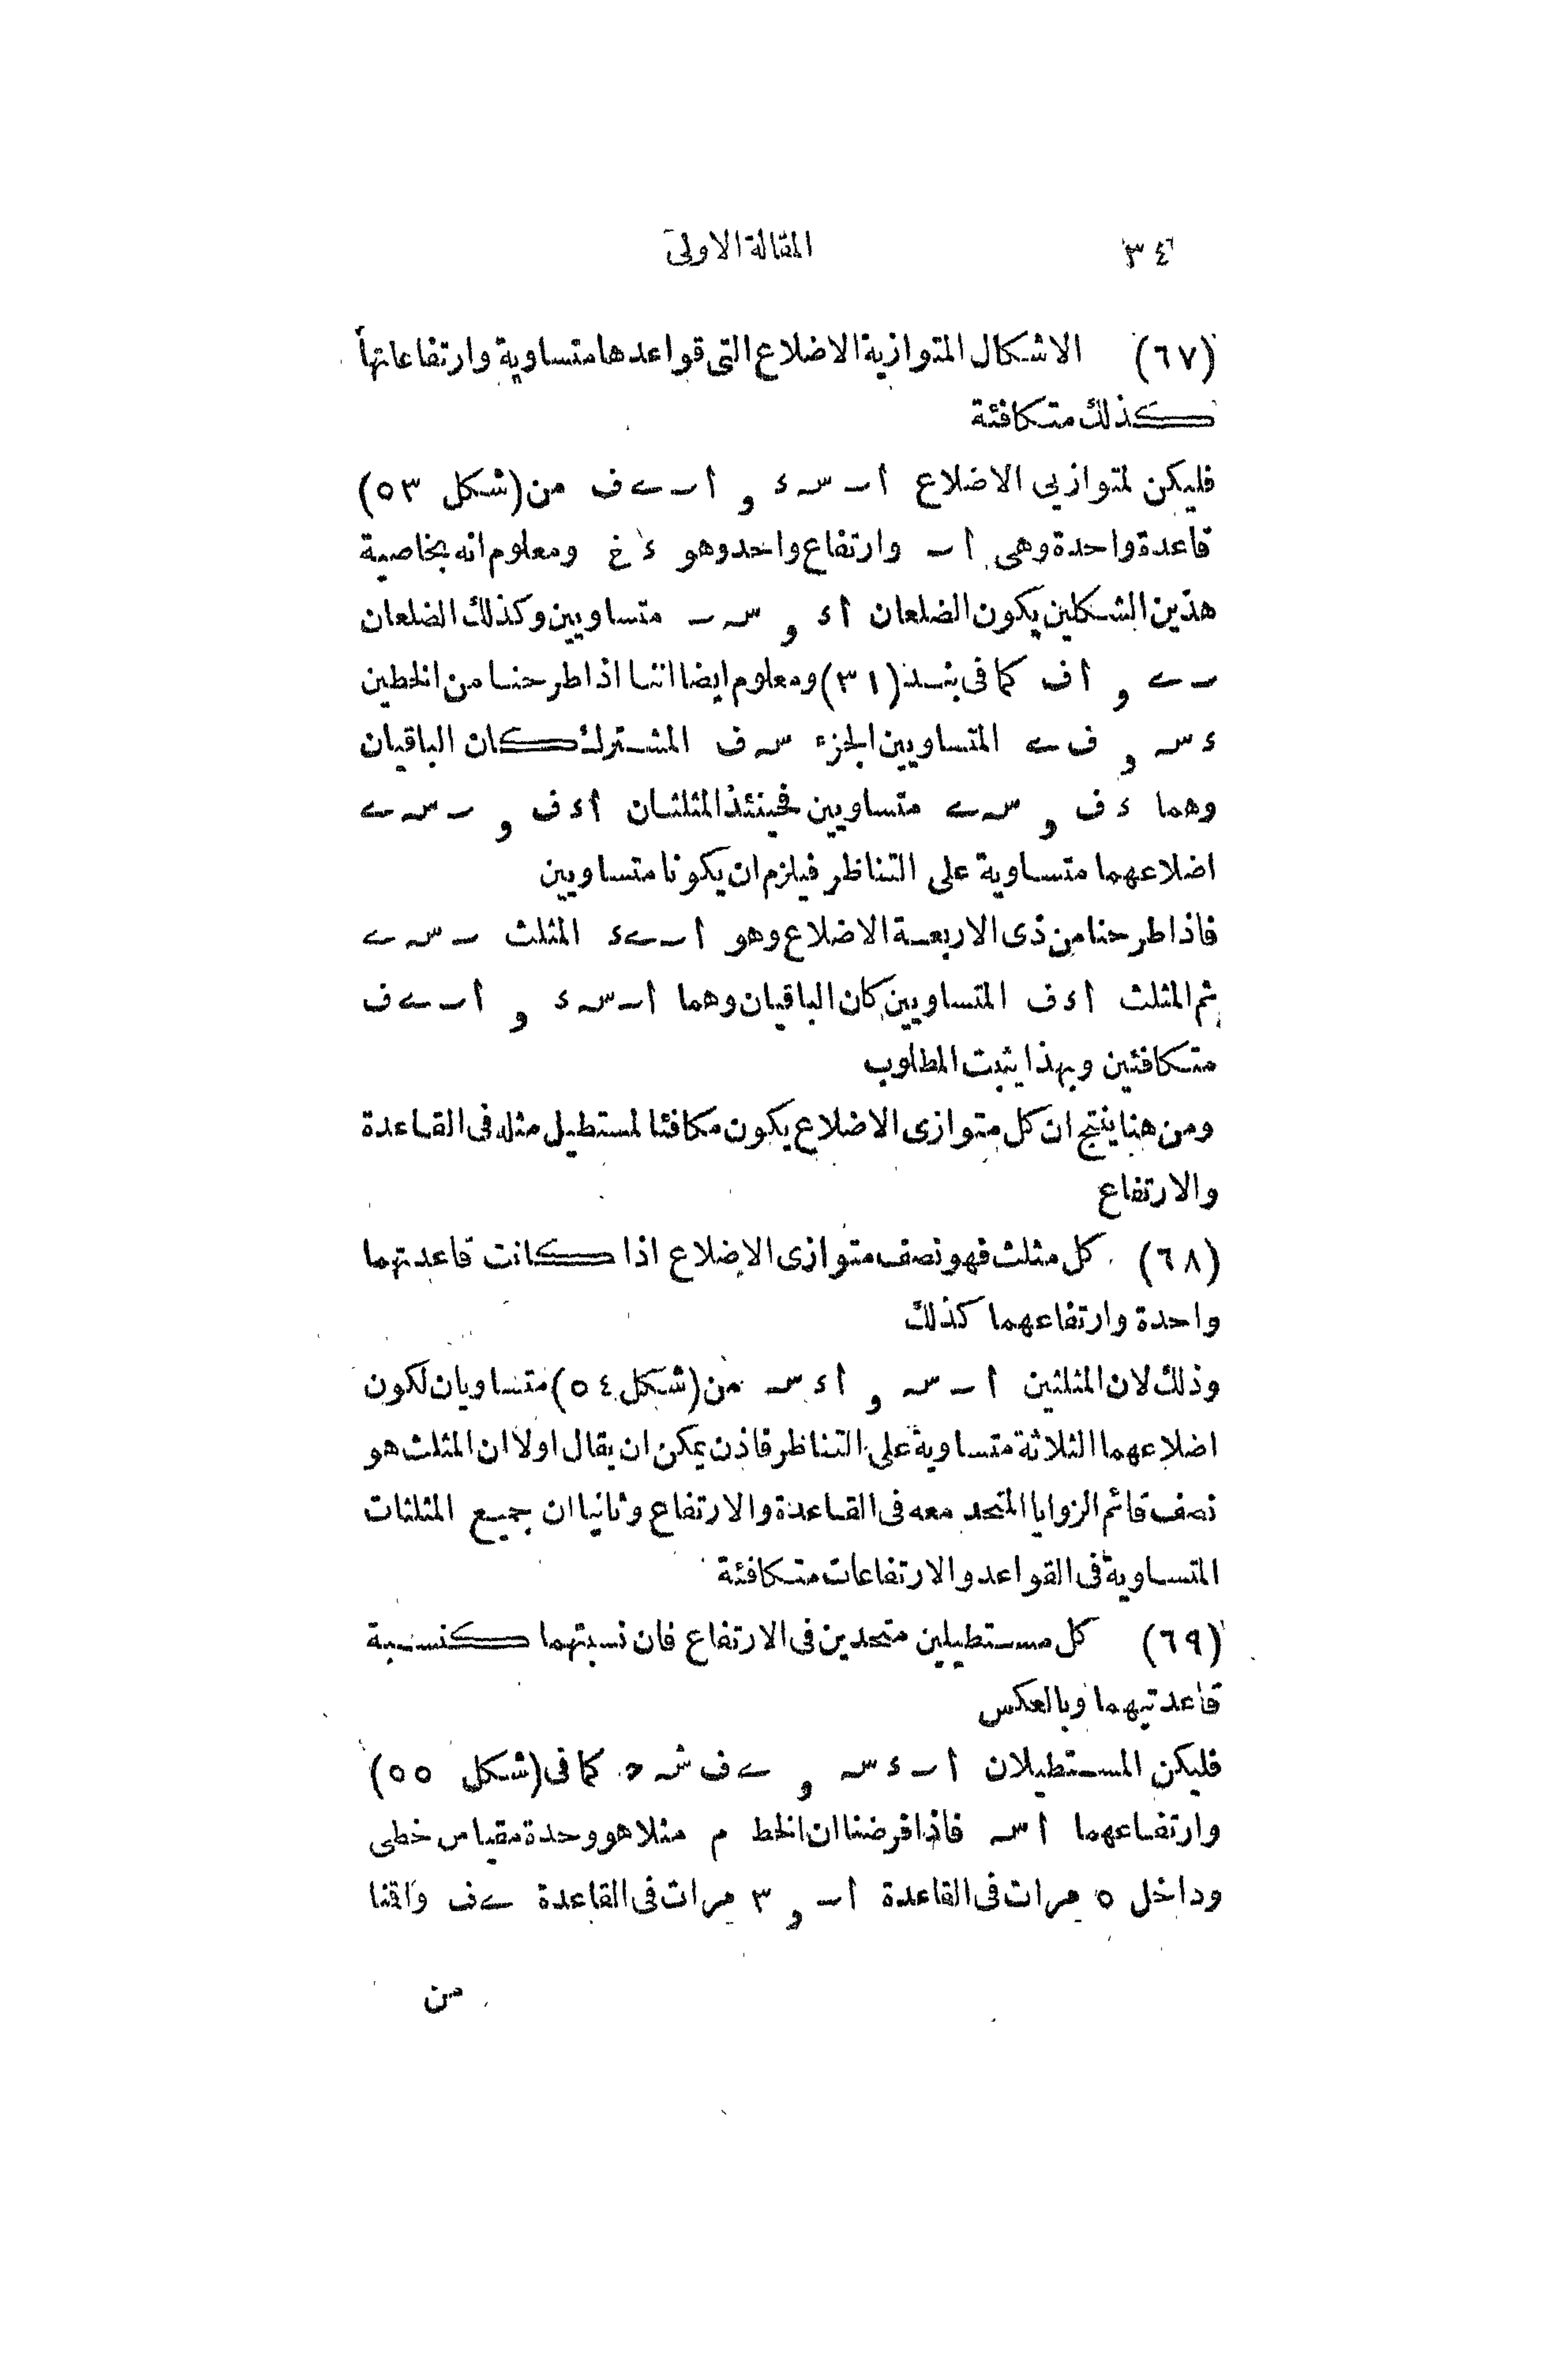 ٣٤ المقالة الاولى
(٦٧) الاشكال المتوازية الاضلاع التى قواعدها متساوية وارتفاعاتها
كذلك متكافئة
فليكن لمتوازيى الاضلاع اٮسء و اٮےف من (شكل ٥٣)
قاعدة واحدة وهى اٮ وارتفاع واحد وهو ءغ ومعلوم انه بخاصية
هذين الشكلين يكون الضلعان اء و سٮ متساويين وكذلك الضلعان
ٮے و اف كما فى بند (٣١) ومعلوم ايضا اننا اذا طرحنا من الخطين
ءس و فے المتساويين الجزء سف المشترك كان الباقيان
وهما ءف و سے متساويين فحينئذ المثلثان اءف و ٮسے
اضلاعهما متساوية على التناظر فيلزم ان يكونا متساويين
فاذا طرحنا من ذى الاربعة الاضلاع وهو اٮےء المثلث ٮسے
ثم المثلث اءف المتساويين كان الباقيان وهما اٮسء و اٮےف
متكافئين وبهذا يثبت المطلوب
ومن هنا ينتج ان كل متوازى الاضلاع يكون مكافئا لمستطيل مثله فى القاعدة
والارتفاع
(٦٨) كل مثلث فهو نصف متوازى الاضلاع اذا كانت قاعدتهما
واحدة وارتفاعهما كذلك
وذلك لان المثلثين اٮس و اءس من (شكل ٥٤) متساويان لكون
اضلاعهما الثلاثة متساوية على التناظر فاذن يمكن ان يقال اولا ان المثلث هو
نصف قائم الزوايا المتحد معه فى القاعدة والارتفاع وثانيا ان جميع المثلثات
المتساوية فى القواعد والارتفاعات متكافئة
(٦٩) كل مستطيلين متحدين فى الارتفاع فان نسبتهما كنسبة
قاعدتيهما وبالعكس
فليكن المستطيلان اٮءس و ےفشه كما فى (شكل ٥٥)
وارتفاعهما اس فاذا فرضنا ان الخط م مثلا هو وحدة مقياس خطى
وداخل ٥ مرات فى القاعدة اٮ و ٣ مرات فى القاعدة ےف واقمنا
من